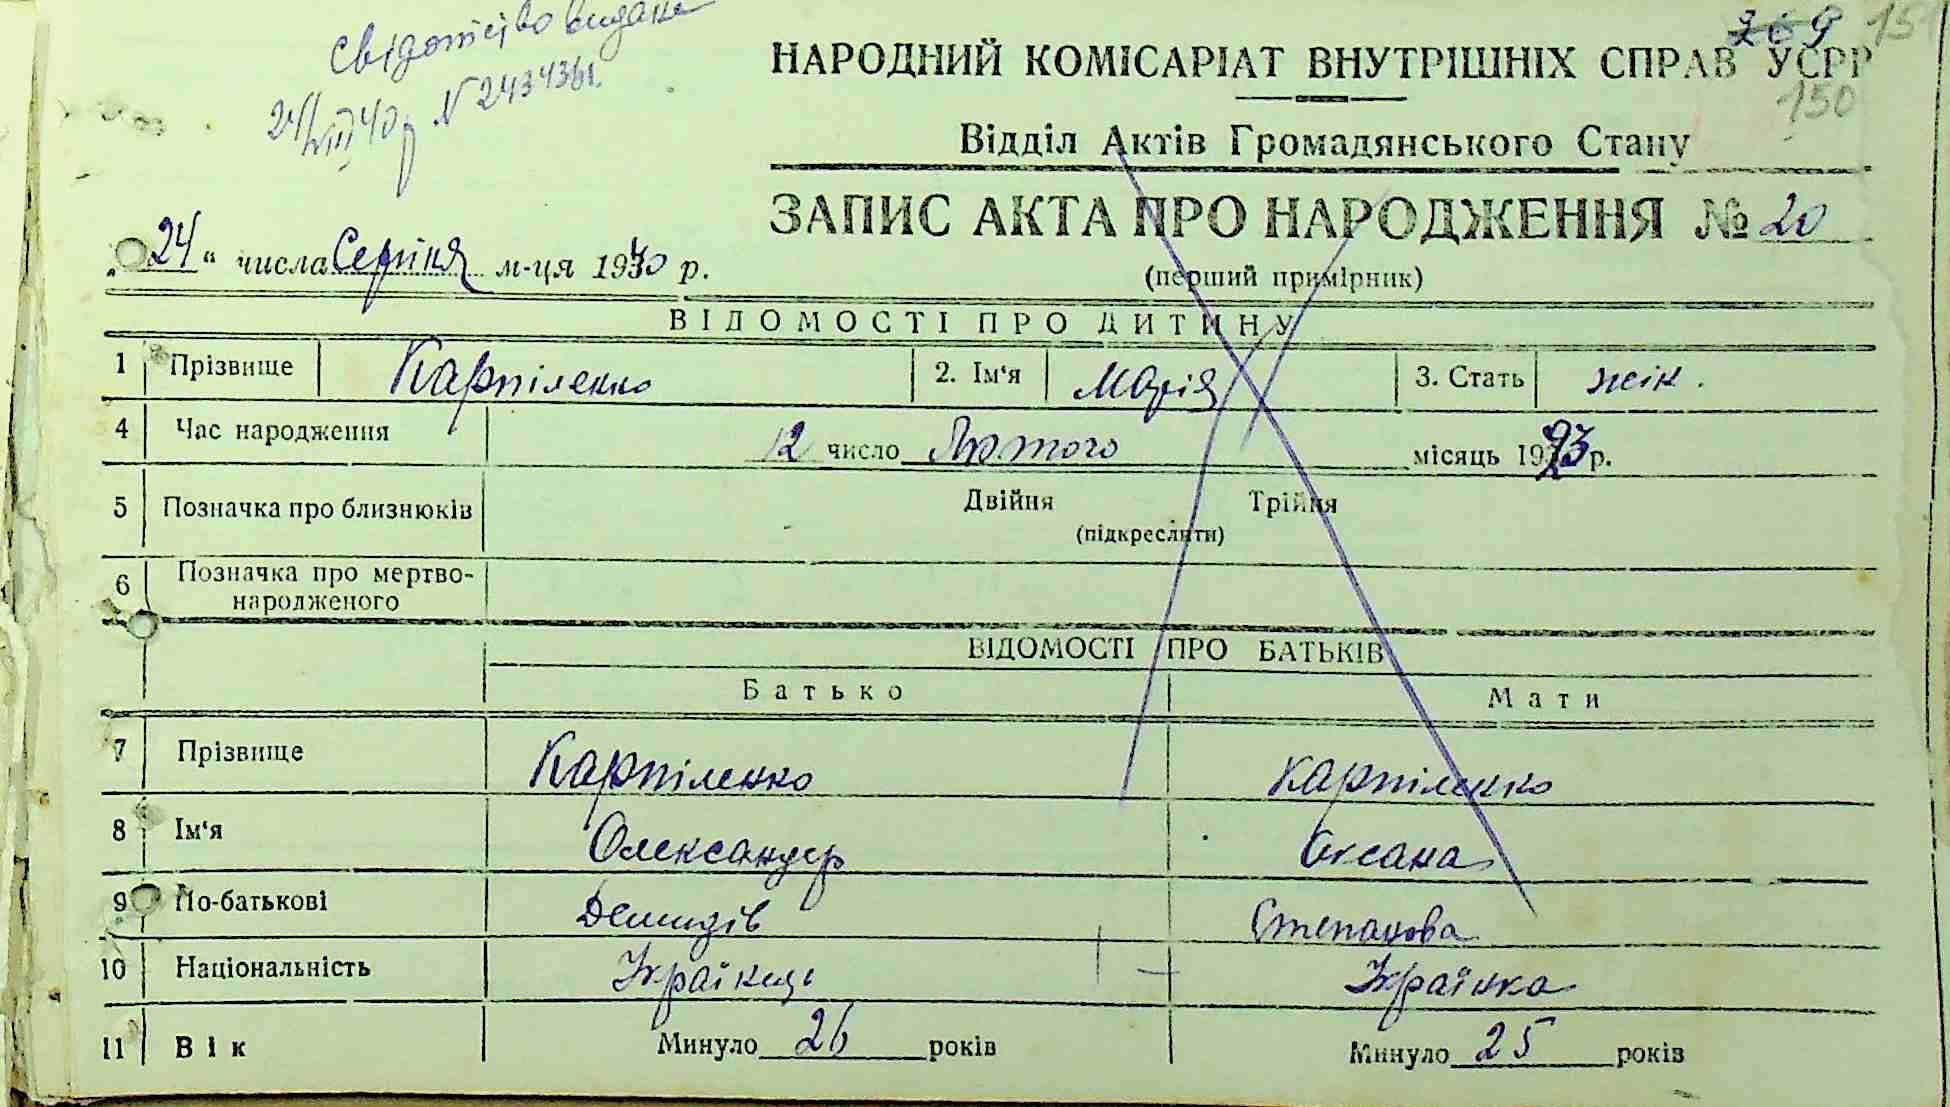 Свідотство видане
24/VIII 40 р N 243436
269 151
НАРОДНИЙ КОМІСАРІАТ ВНУТРІШНІХ СПРАВ УСРР
150
Відділ Актів Громадянського Стану
ЗАПИС АКТА ПРО НАРОДЖЕННЯ № 20
„24“ числа Серпня м-ця 1940 р.
(перший примірник)
ВІДОМОСТІ ПРО ДИТИНУ
1 Прізвище Карпіленко 2. Ім‘я Марія 3. Стать жін.
4 Час народження 12 число Лютого місяць 1923 р.
5 Позначка про близнюків Двійня Трійня
(підкреслити)
6 Позначка про мертво-
народженого
ВІДОМОСТІ ПРО БАТЬКІВ
Батько Мати
7 Прізвище Карпіленко Карпіленко
8 Ім‘я Олександер Оксана
9 По-батькові Демидів Степанова
10 Національність Українець Українка
11 Вік Минуло 26 років Минуло 25 років